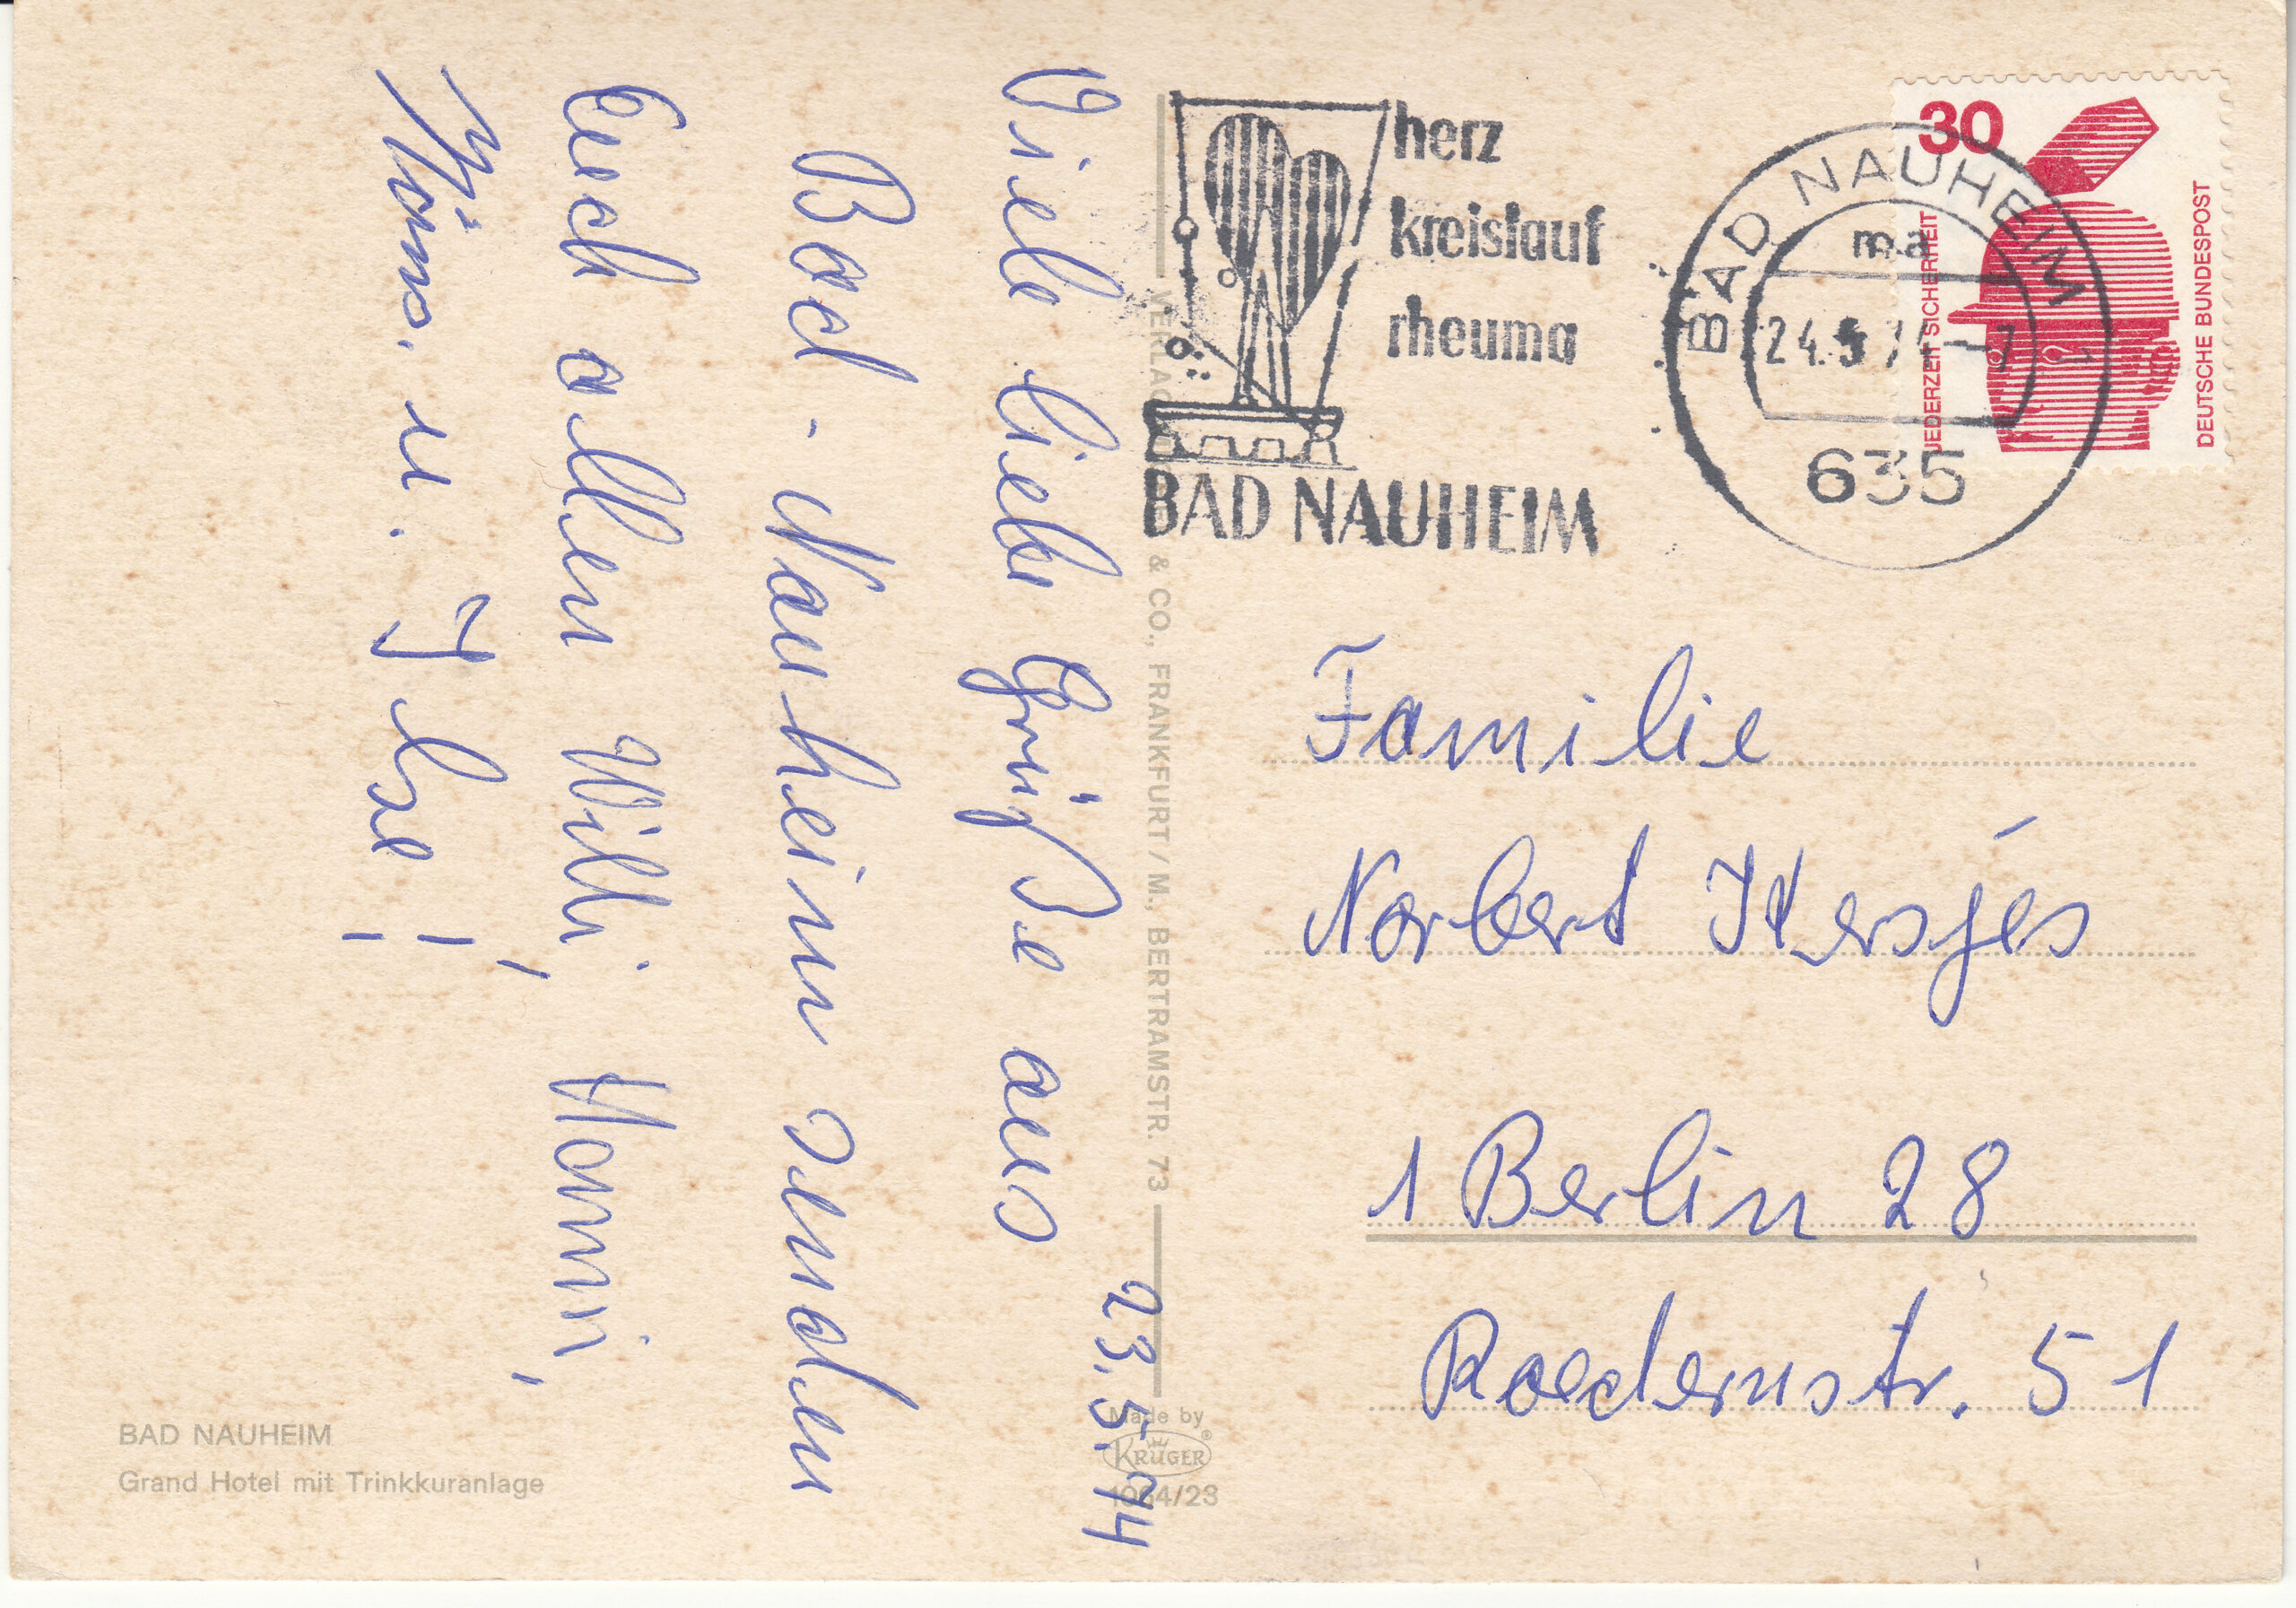 23.5.74
Viele liebe Grüße aus
Bad-Nauheim senden
Euch allen Willi, Hanni,
u. Ilse!
herz
kreislauf
rheuma
BAD NAUHEIM
BAD NAUHEIM
ma
24.5.7
635
30
JEDERZEIT SICHERHEIT
DEUTSCHE BUNDESPOST
Familie
Norbert
1 Berlin 28
Roedernstr. 51
& CO., FRANKFURT/M., BERTRAMSTR. 73
Made by
KRÜGER®
1064/23
BAD NAUHEIM
Grand Hotel mit Trinkkuranlage